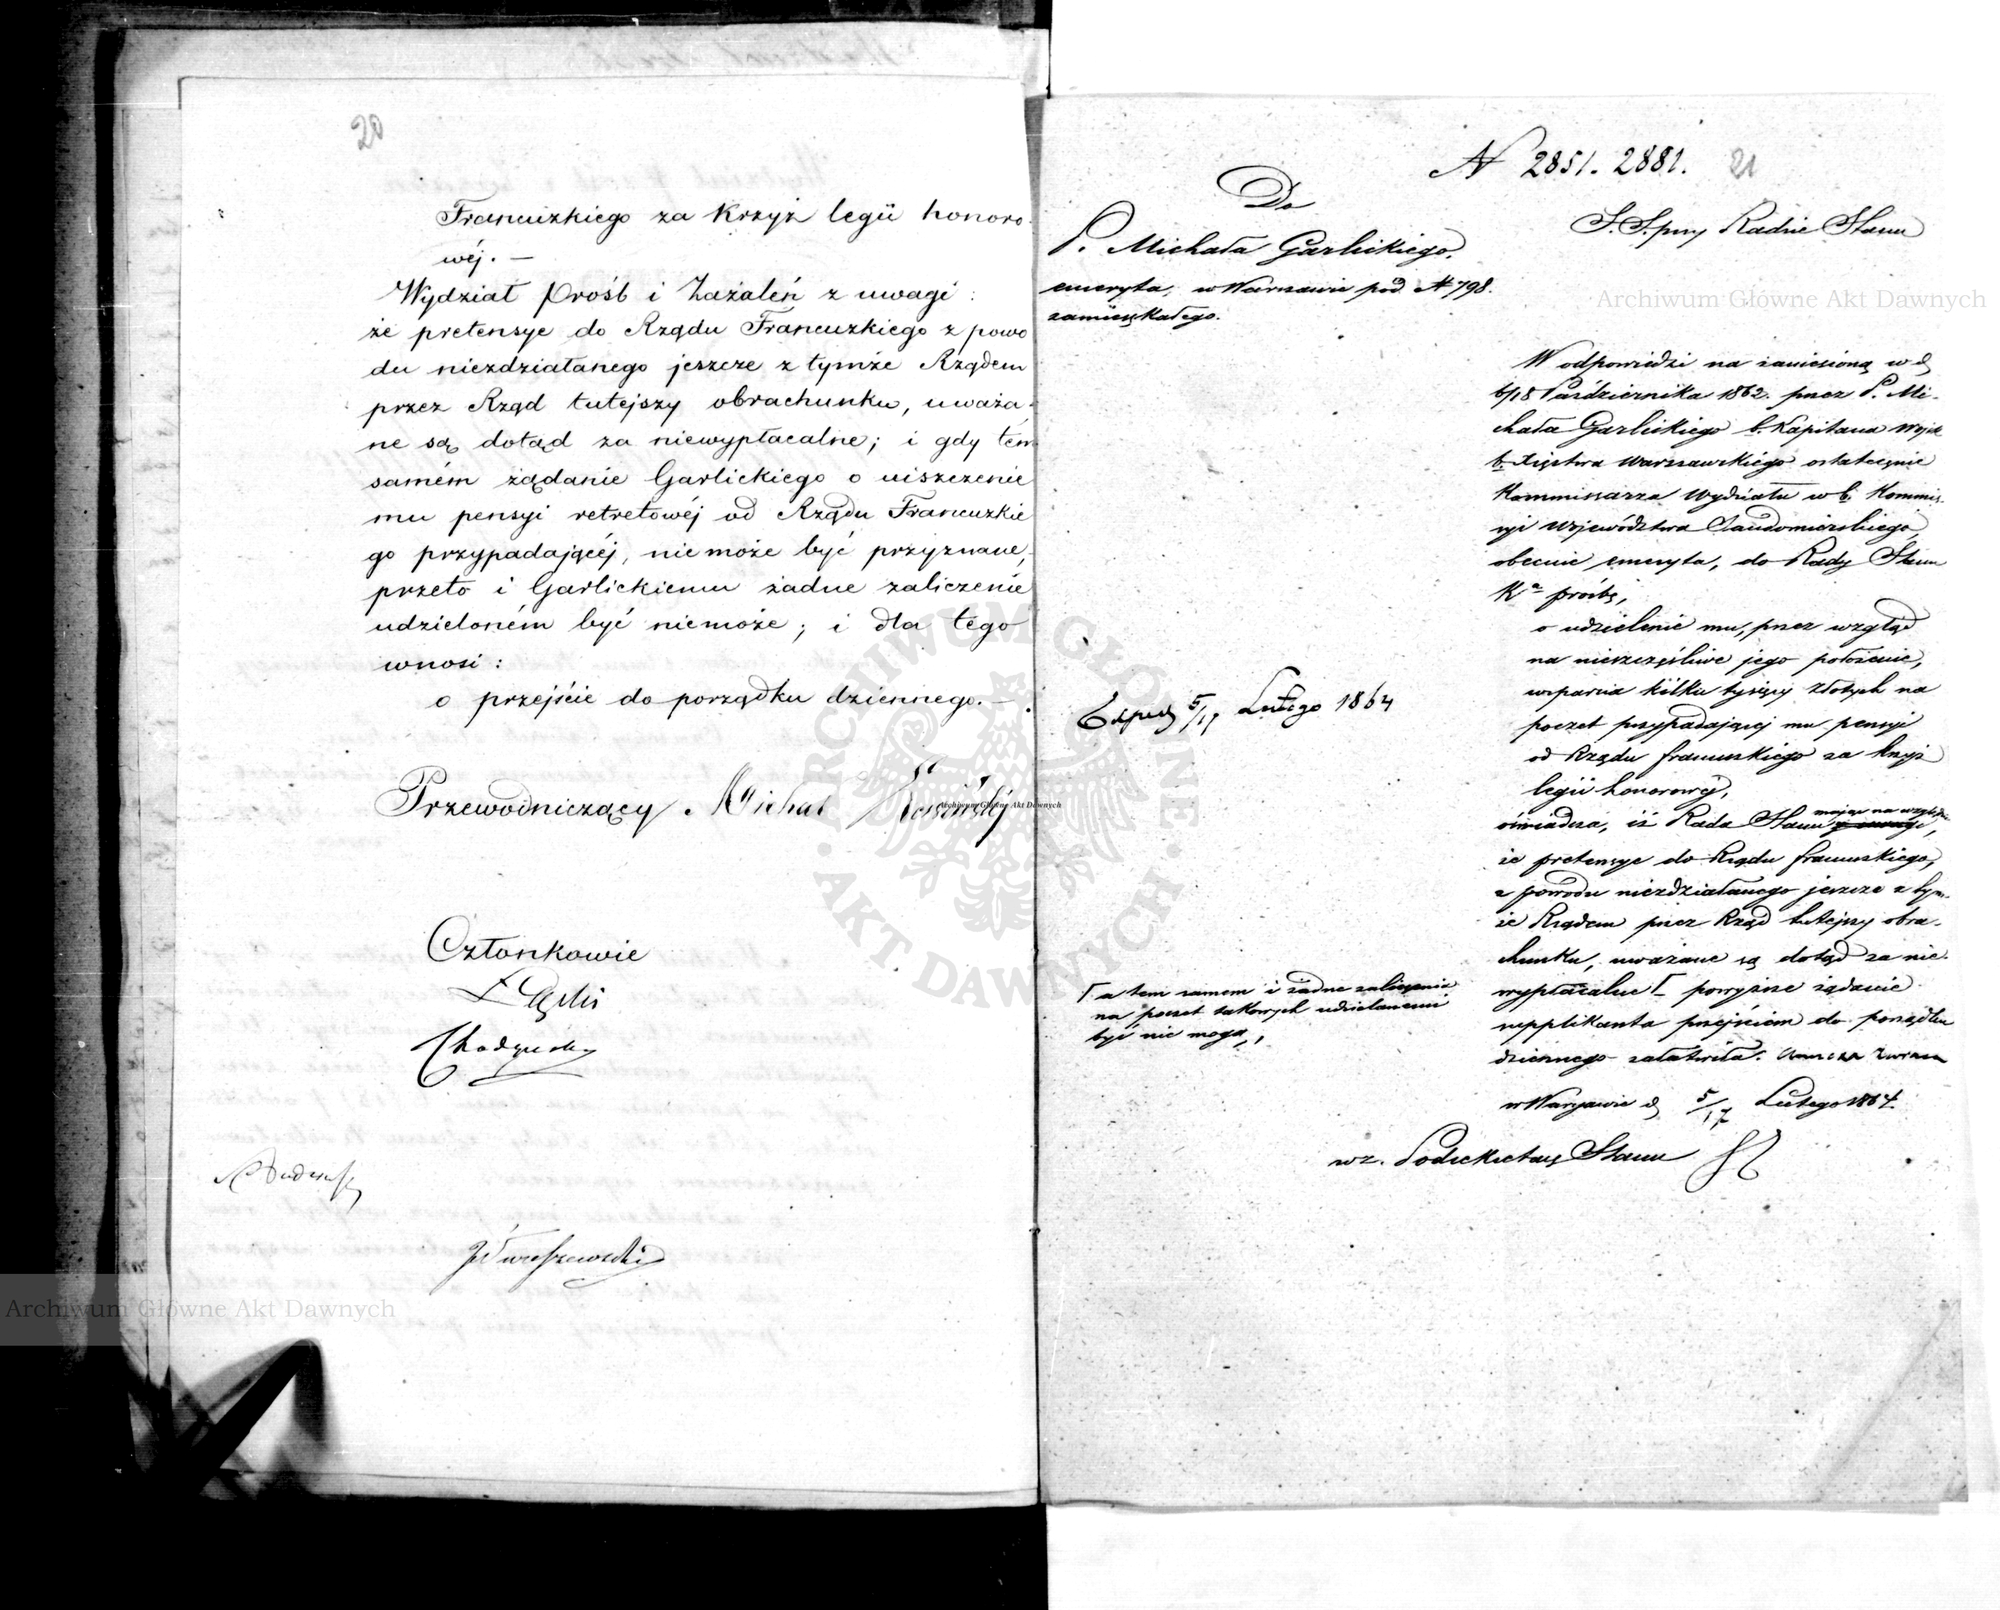 20
Francuzkiego za Krzyż legii honoro-
wéj. —
Wydział Próśb i Zażaleń z uwagi:
że pretensye do Rządu Francuzkiego z powo
du niezdziałanego jeszcze z tymże Rządem
przez Rząd tutejszy obrachunku, uważa-
ne są dotąd za niewypłacalne; i gdy tém
samém żądanie Garlickiego o uiszczenie
mu pensyi retretowéj od Rządu Francuzkie
go przypadającéj, nie może być przyznane,
przeto i Garlickiemu żadne zaliczenie
udzieloném być niemoże; i dla tego
wnosi:
o przejście do porządku dziennego. —
Przewodniczący Michał
Członkowie
N 2851. 2881. 21
Do
P. Michała Garlickiego.
emeryta, w Warszawie pod N 798.
zamieszkałego.
S.S. przy Radzie Stanu
W odpowiedzi na zaniesioną w d
6/18 Października 1862. przez P. Mi-
chała Garlickiego b. Kapitana Wojsk
b. Xięstwa Warszawskiego ostatecznie
Kommissarza Wydziału w b. Kommis-
syi Województwa Sandomierskiego,
obecnie emeryta, do Rady Stanu
Kr. prośbę,
o udzielenie mu, przez wzgląd
na nieszczęśliwe jego położenie,
wsparcia kilku tysięcy złotych na
poczet przypadającej mu pensyi
od Rządu francuskiego za krzyż
legii honorowéj,
oświadcza, iż Rada Stanu mając na względzie
z uwagi,
że pretensye do Rządu francuskiego,
z powodu niezdziałanego jeszcze z tym-
że Rządem przez Rząd tutejszy obra-
chunku, uważane są dotąd za nie-
wypłacalne Γ powyższe żądanie
supplikanta przejściem do porządku
dziennego załatwiła.
w Warszawie d 5/17 Lutego 1864.
wz. Podsekretarz Stanu
5/17 Lutego 1864
Γ a tem samem i żadne zaliczenia
na poczet takowych udzielanemi
być nie mogą,
Archiwum Główne Akt Dawnych
Archiwum Główne Akt Dawnych
Archiwum Główne Akt Dawnych
ARCHIWUM GŁÓWNE
AKT DAWNYCH